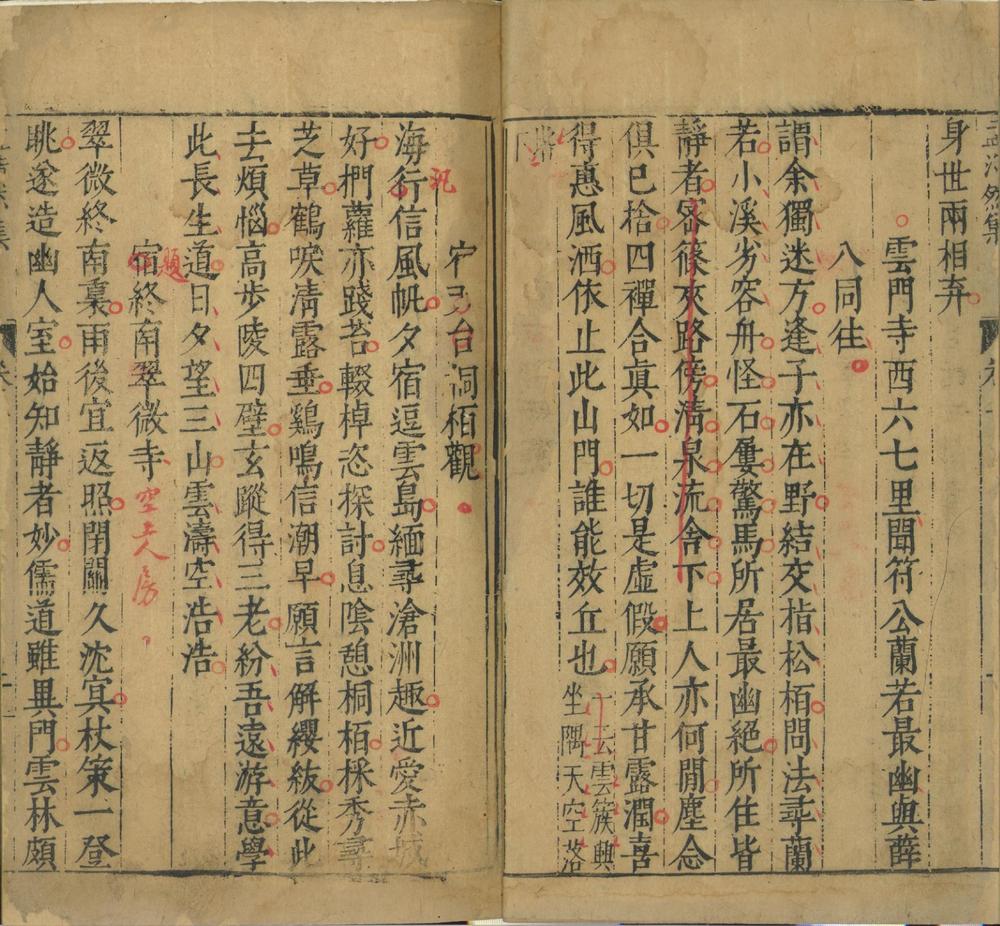 孟浩然集
身世兩相弃
雲門寺西六七里聞符公蘭若最幽與薛
八同往
謂余獨迷方逢子亦在野結交指松栢問法尋蘭
若小溪劣容舟怪石屢驚馬所居最幽絕所住皆
靜者密篠夾路傍清泉流舎下上人亦何閒塵念
俱已捨四禪合真如一切是虛假願承甘露潤喜
得惠風洒依止此山門誰能效丘也 一云雲簇興
坐隅天空落
階下
宿天台桐栢觀
海行信風帆夕宿逗雲島緬尋滄洲趣近愛赤城
汎
好捫蘿亦踐苔輟棹恣探討息陰憩桐栢采秀尋
芝草鶴唳淸露垂鷄鳴信潮早願言解纓紱從此
去煩惱高步陵四壁玄蹤得三老紛吾遠游意學
此長生道日夕望三山雲濤空浩浩
題
宿終南翠微寺
空上人房
翠微終南裏雨後宜返照閉關久沈冥杖策一登
眺遂造幽人室始知靜者妙儒道雖異門雲林頗